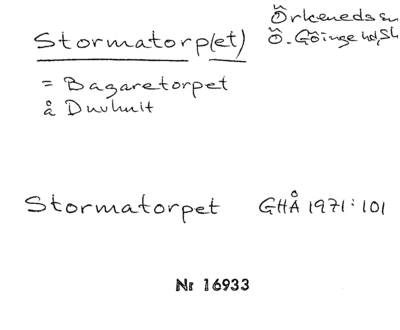 Örkeneds sn
Stormatorp(et)
Ö. Göinge hd, Sk
= Bagaretorpet
å Duvhult
Stormatorpet GHÅ 1971:101
Nr 16933